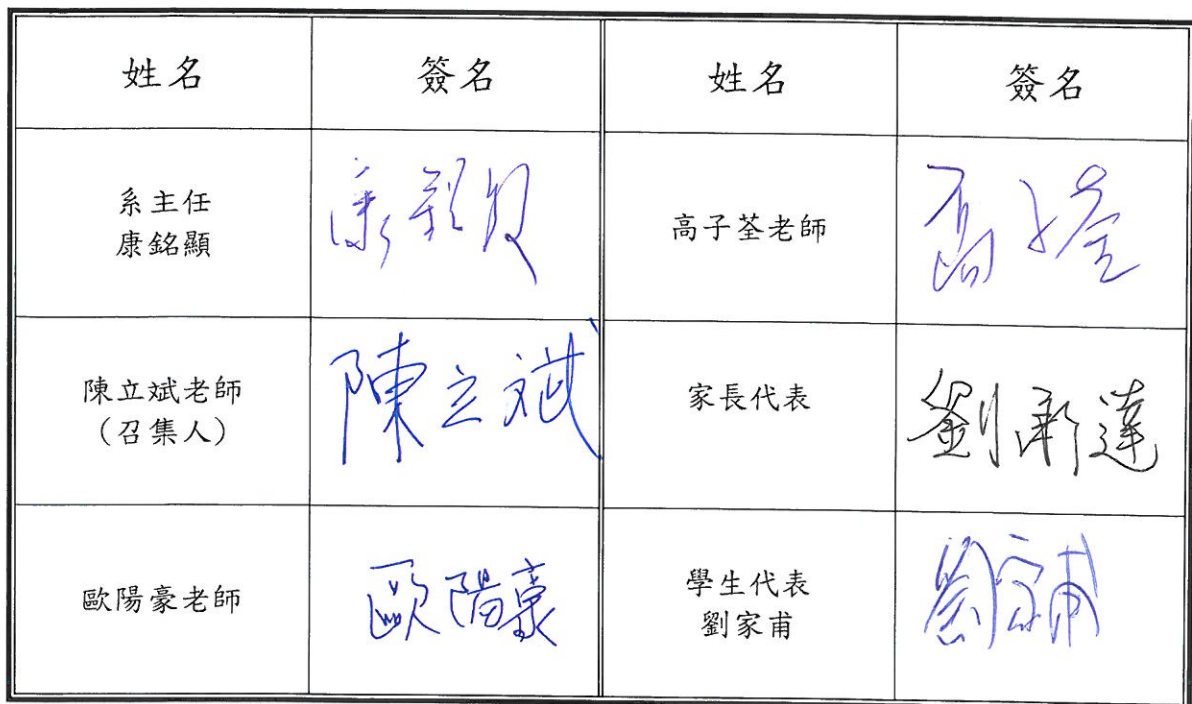 姓名 簽名 姓名 簽名
系主任
康銘顯
高子荃老師
高子荃
陳立斌老師
（召集人）
陳立斌
家長代表
歐陽豪老師
歐陽豪
學生代表
劉家甫
劉家甫